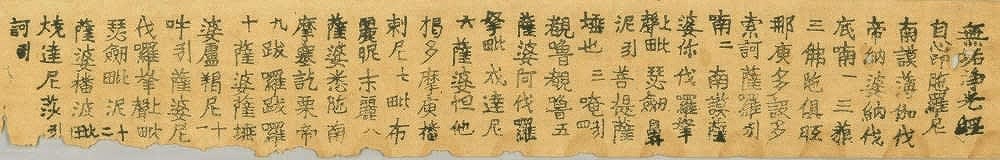 無垢淨光經
自心印陁羅尼
南謨薄伽伐
帝納婆納伐
底喃一 三藐
三佛陁俱胝
那庾多設多
索訶薩羅引
喃二 南謨薩
婆你伐羅拏
上聲毗瑟劒毗
泥引菩提薩
埵也 三唵四引
覩嚕覩嚕五
薩婆阿伐羅
拏毗戍達尼
六薩婆怛他
揭多摩庾播
剌尼七毗布
麗昵末麗八
薩婆悉陁南
摩塞訖栗帝
九跋羅跋羅
十薩婆薩埵
婆盧羯尼十一
吽引薩婆尼
伐羅拏上聲毗
瑟劒毗泥十二
薩婆播波毗
燒達尼莎引
訶引